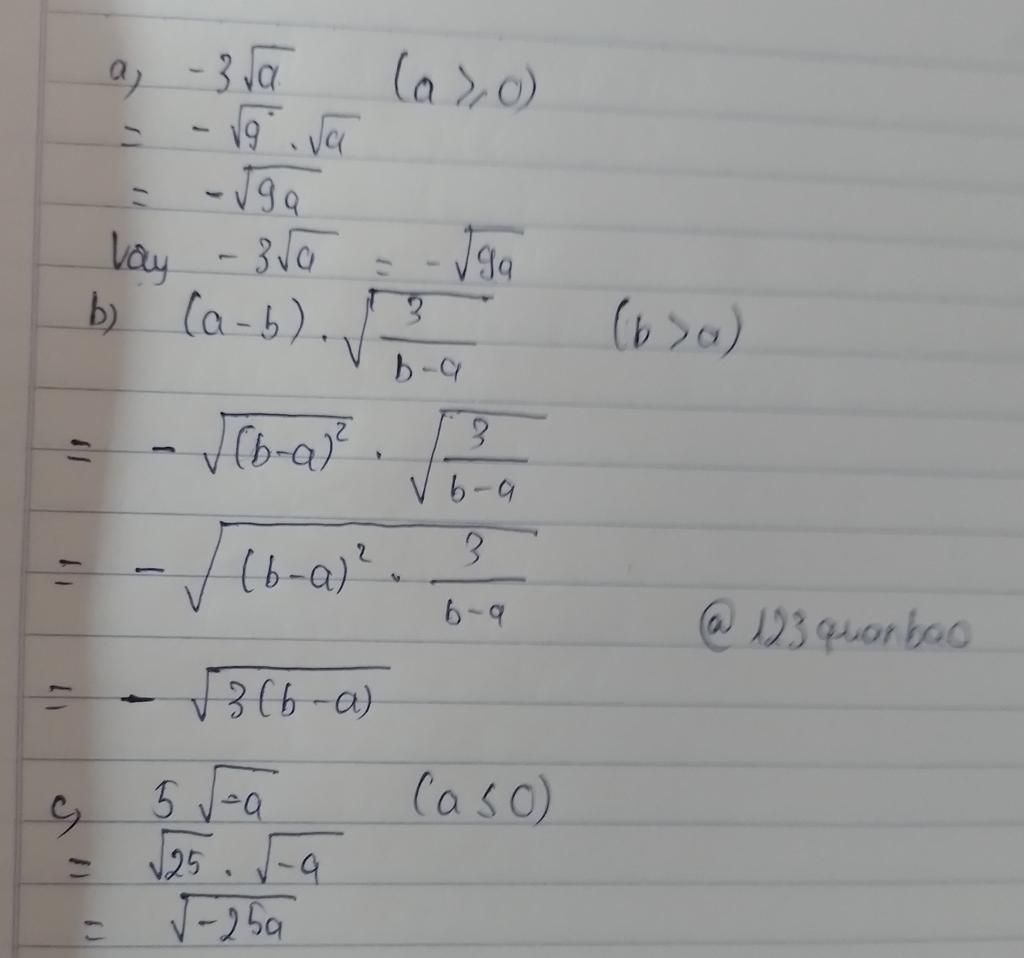 a, -3√a (a ⩾ 0)
= -√9 . √a
= -√9a
Vậy -3√a = -√9a
b) (a-b) . √(3/(b-a)) (b > a)
= - √((b-a)²) . √(3/(b-a))
= - √((b-a)² . 3/(b-a))
@123quanbao
= - √(3(b-a))
c, 5√-a (a ≤ 0)
= √25 . √-a
= √-25a